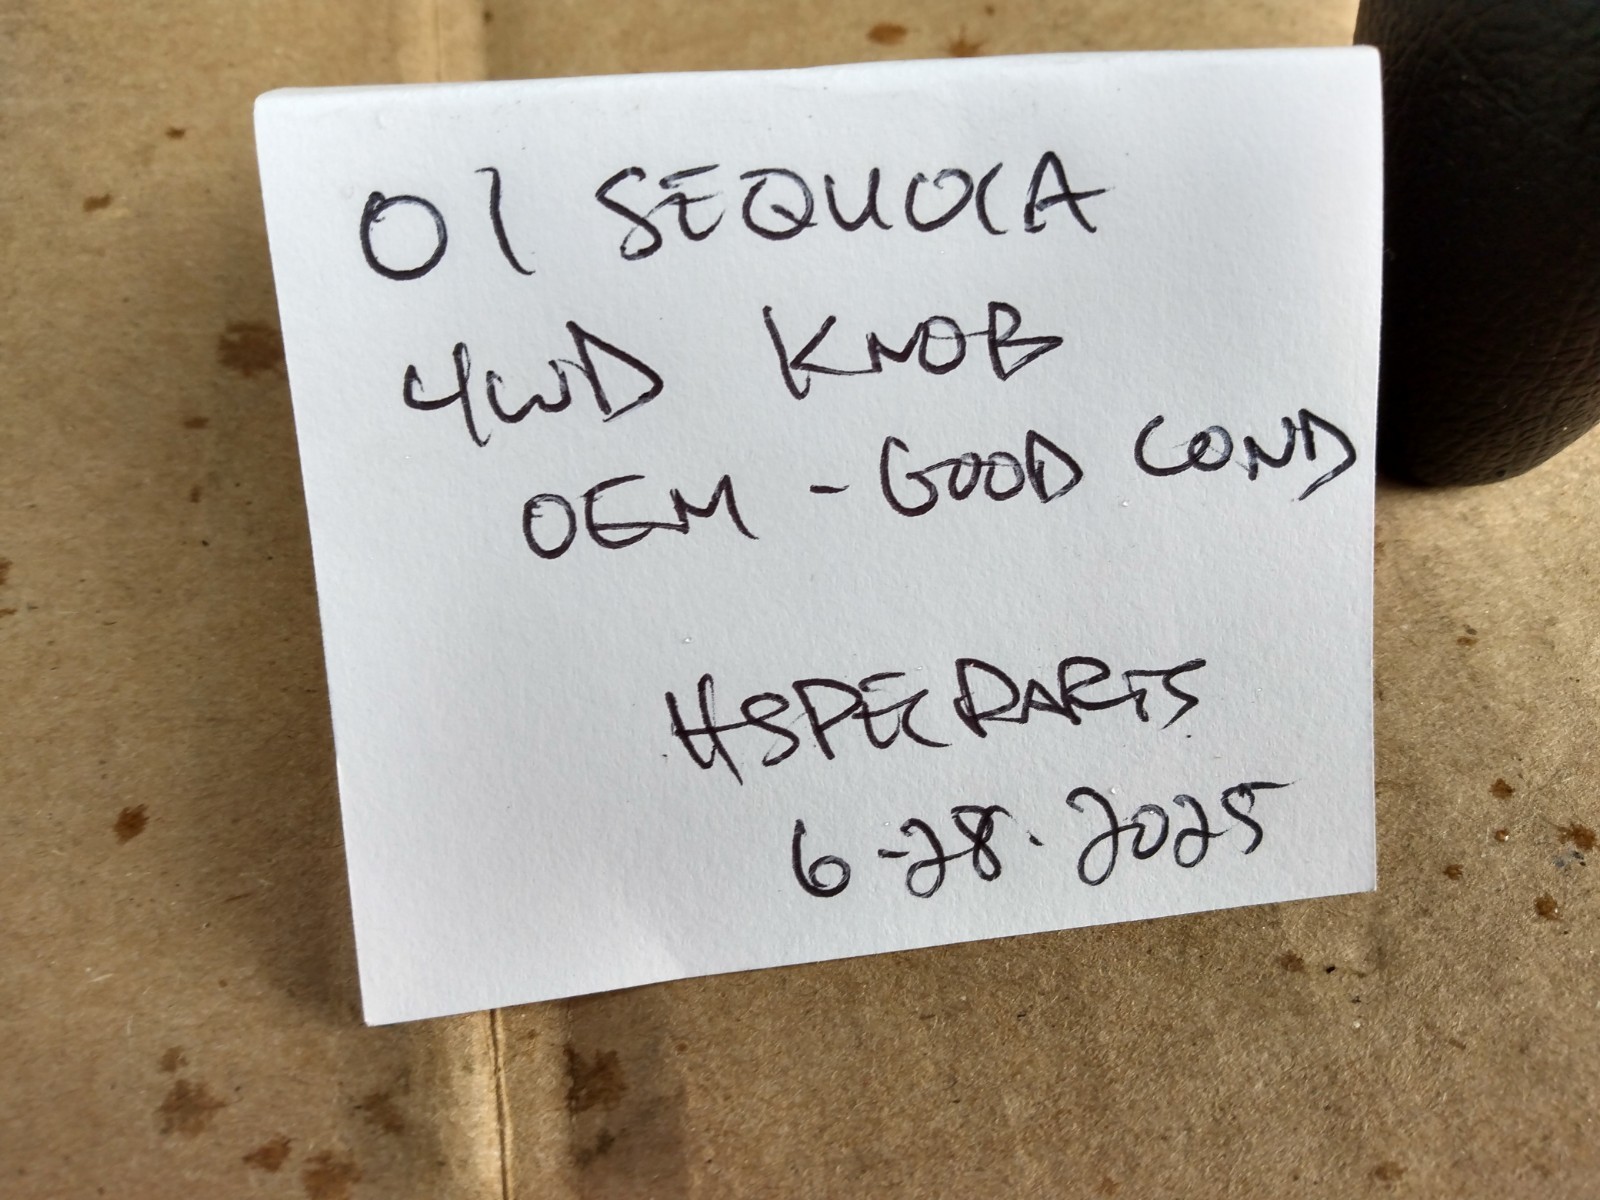 01 SEQUOIA
4WD KNOB
OEM - GOOD COND
HSPECPARTS
6-28-2025